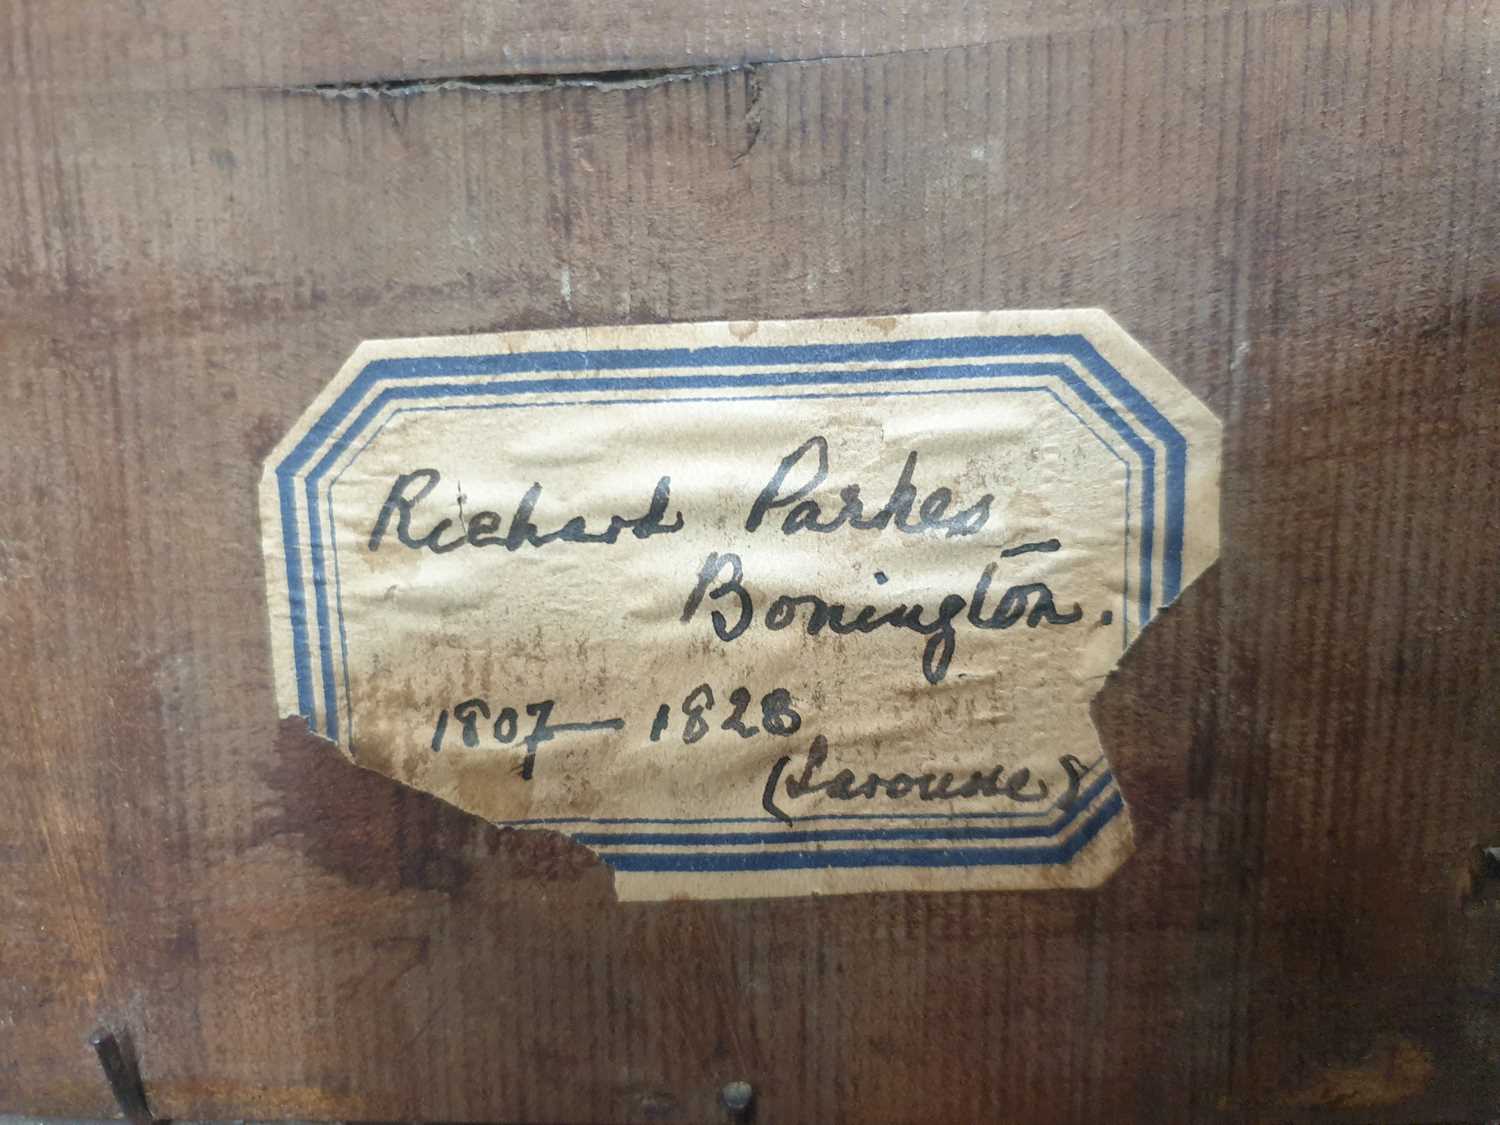 Richard Parkes
Bonington.
1807 — 1828
(Larousse)